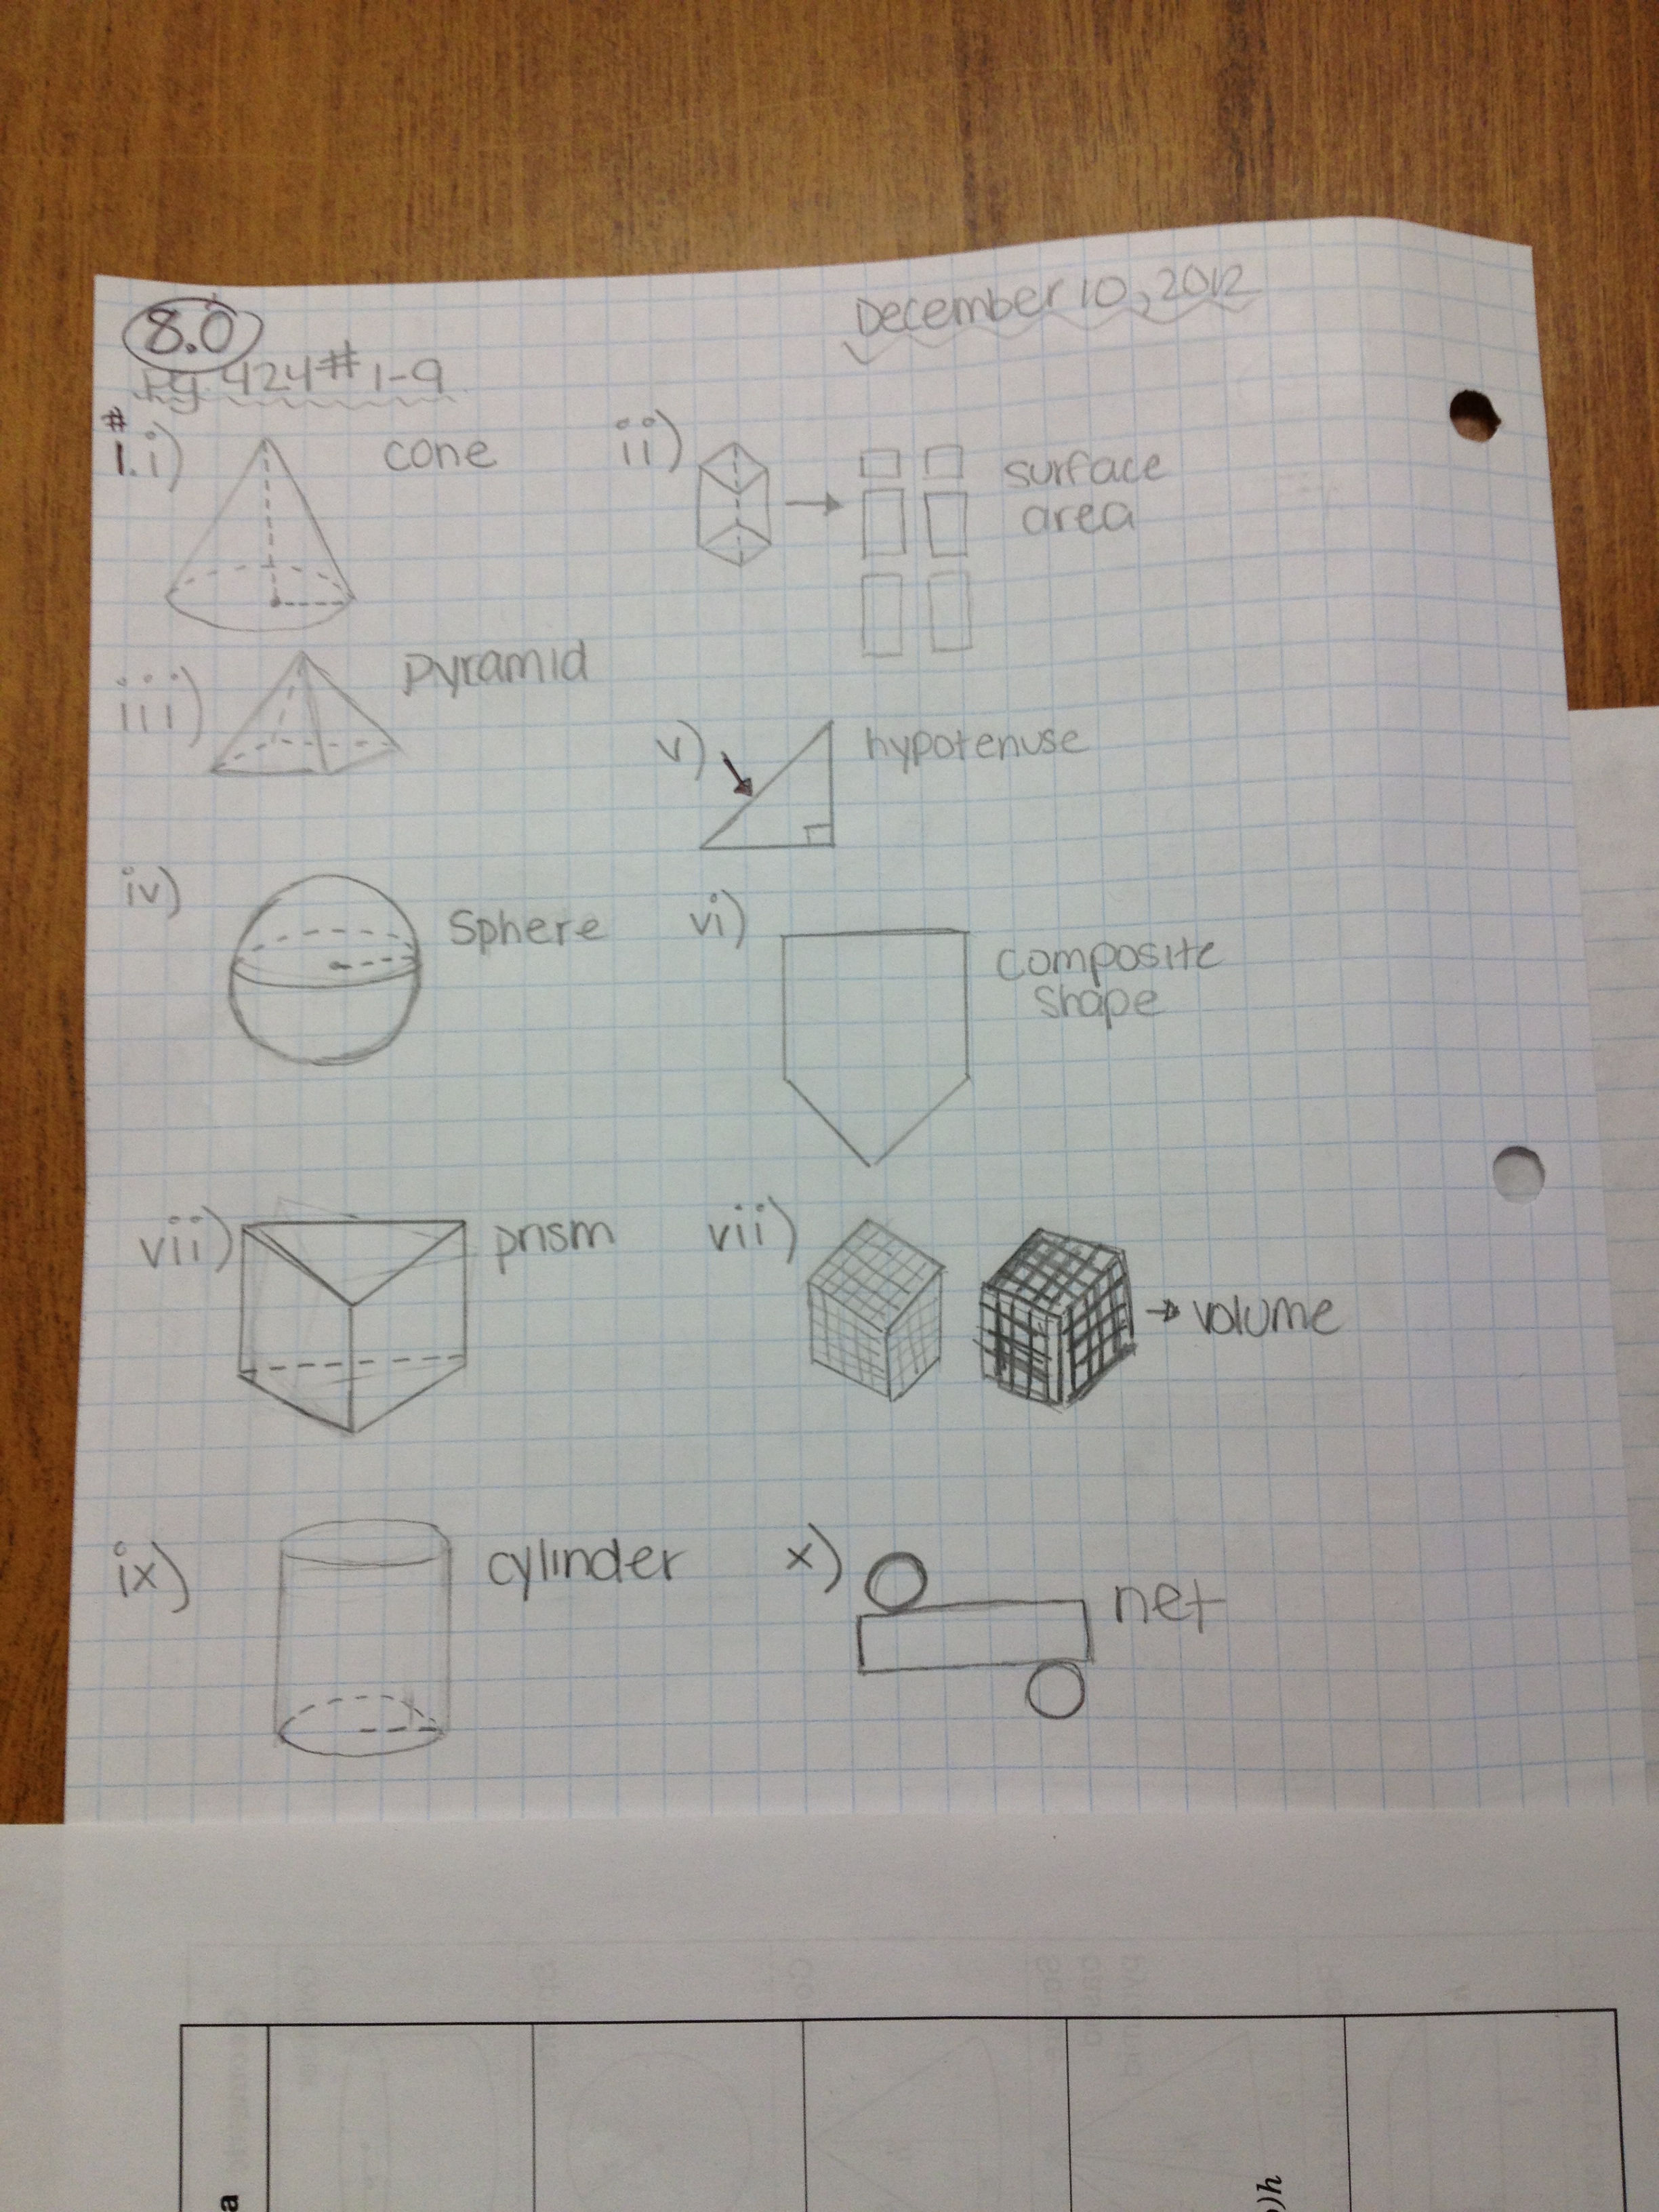 8.0
December 10, 2012
Pg. 424 # 1-9
#
1. i) cone
ii) surface
area
iii) pyramid
v) hypotenuse
iv) Sphere
vi) composite
shape
vii) prism
vii) volume
ix) cylinder
x) net
a
)h